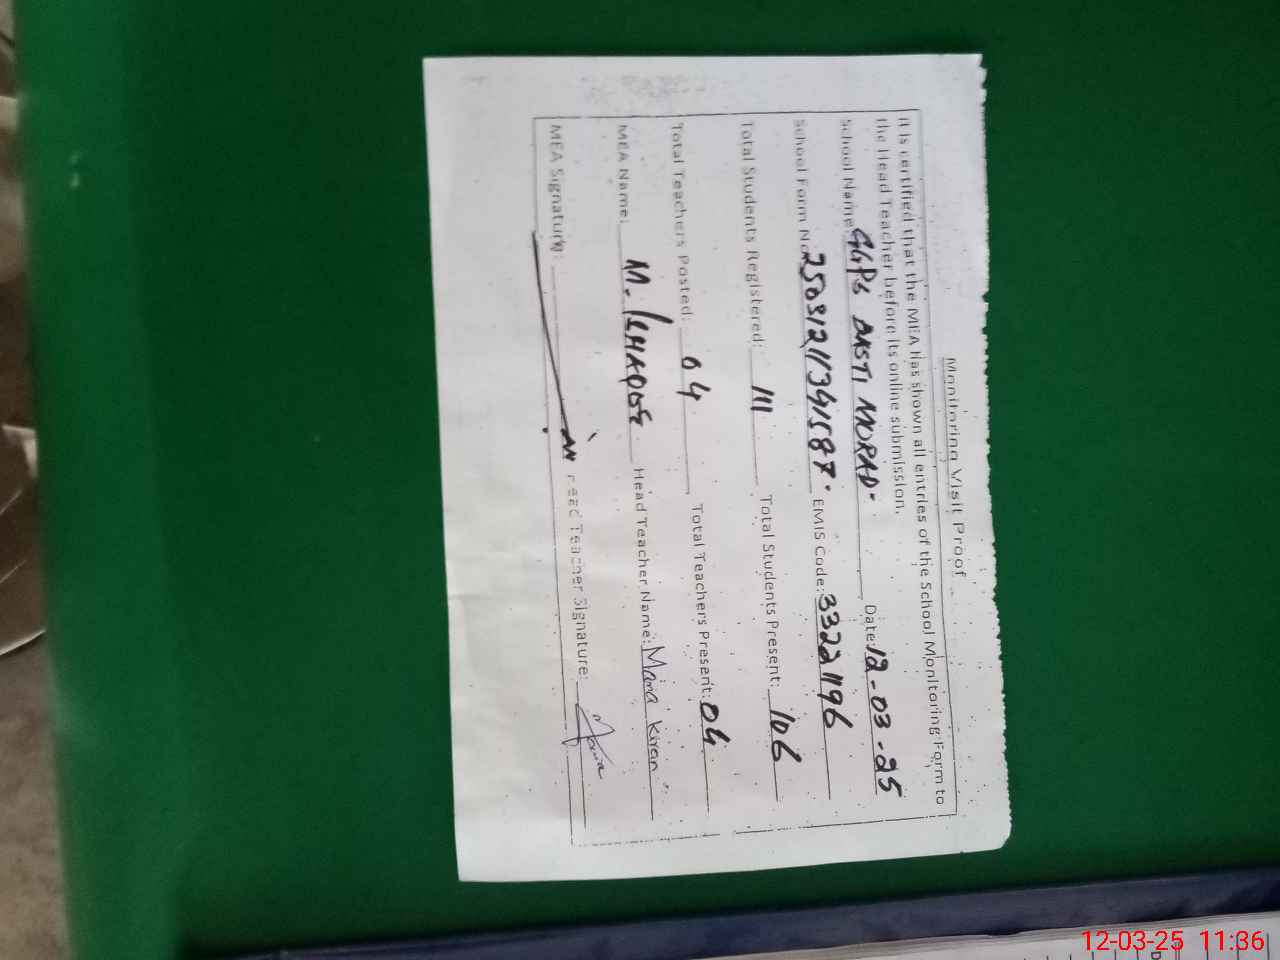 Monitoring Visit Proof
It is certified that the MEA has shown all entries of the School Monitoring Form to
the Head Teacher before its online submission.
School Name: GGPS BASTI MORAD. Date: 12-03-25
School Form No 25031211341587. EMIS Code: 33221196
Total Students Registered: 111 Total Students Present: 106
Total Teachers Posted: 04 Total Teachers Present: 04
MEA Name: M. Head Teacher Name: Maria Kiran
MEA Signature: Head Teacher Signature:
12-03-25 11:36